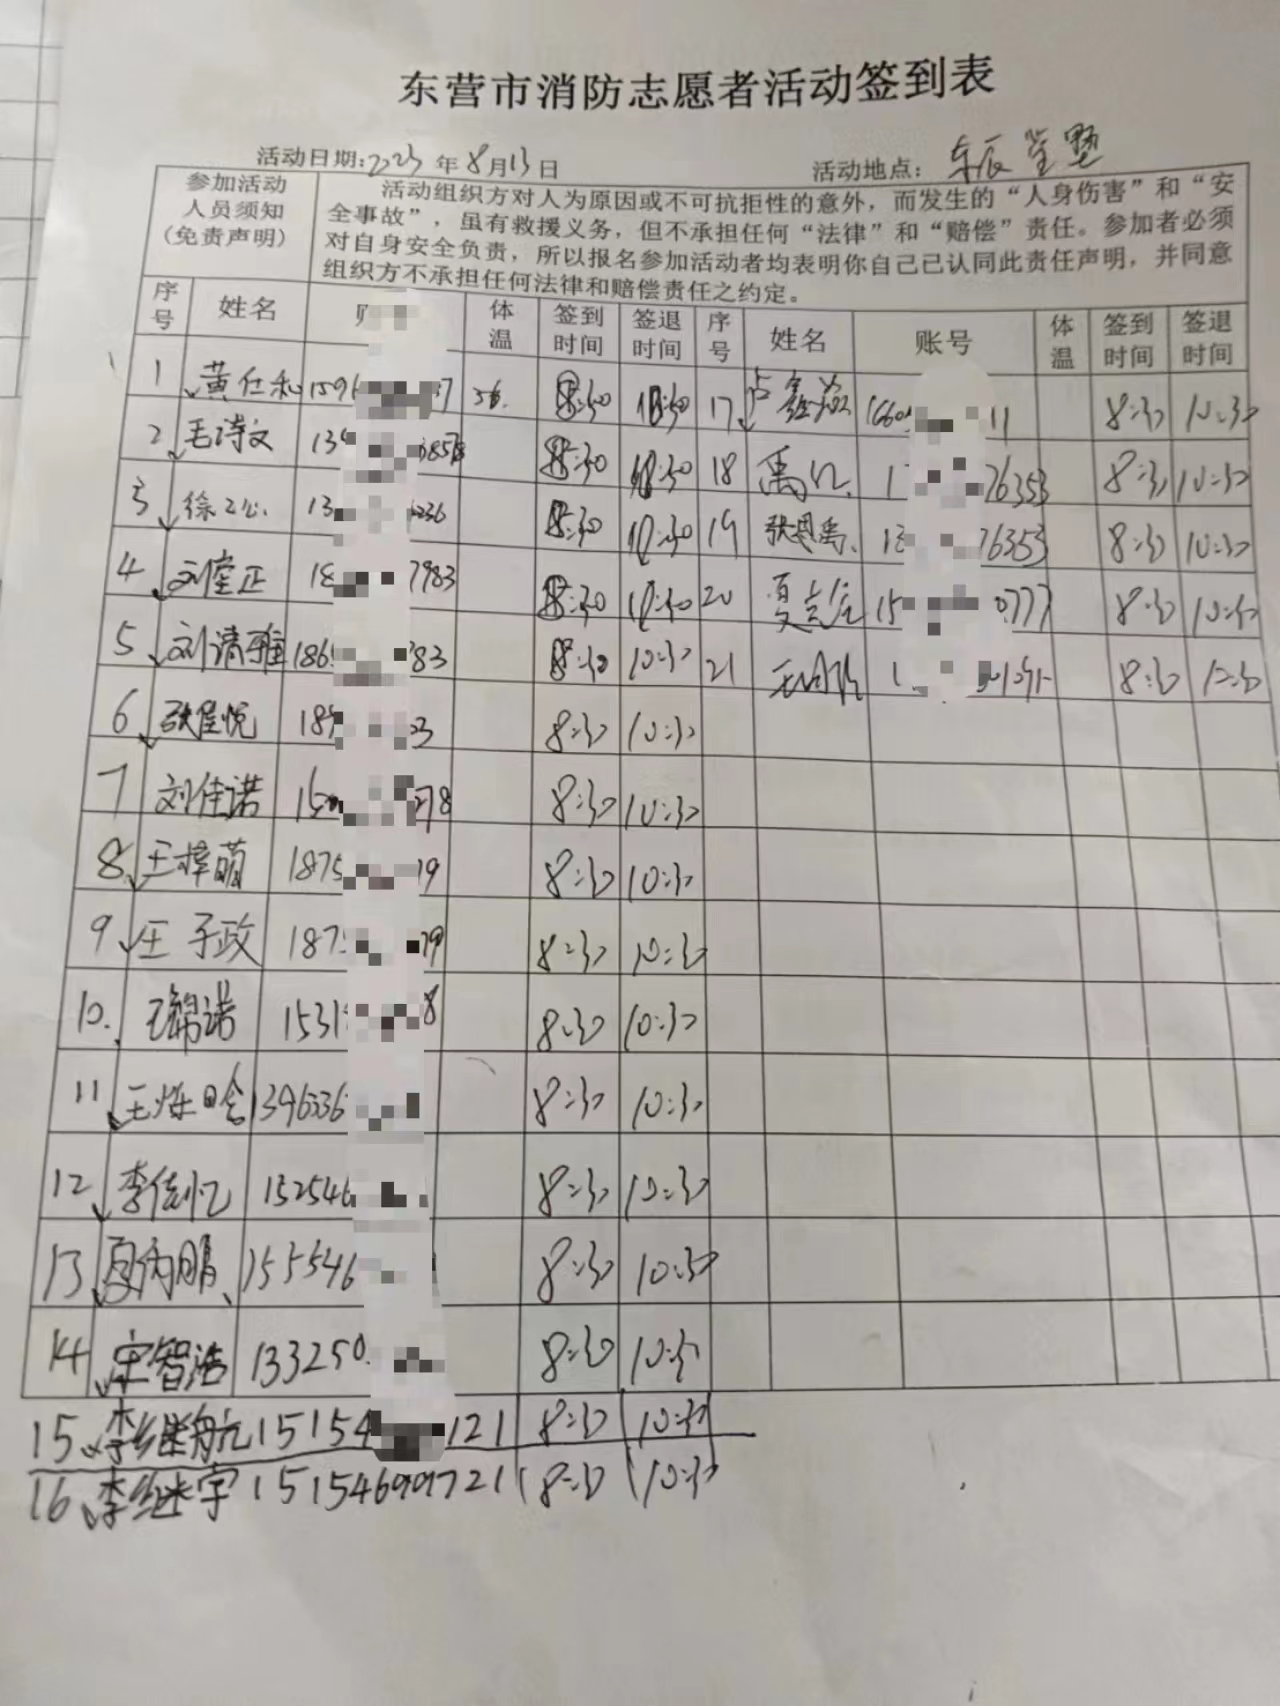 东营市消防志愿者活动签到表
活动日期:2023年8月13日 活动地点:东辰
参加活动人员须知(免责声明)
活动组织方对人为原因或不可抗拒性的意外，而发生的“人身伤害”和“安
全事故”，虽有救援义务，但不承担任何“法律”和“赔偿”责任。参加者必须
对自身安全负责，所以报名参加活动者均表明你自己已认同此责任声明，并同意
组织方不承担任何法律和赔偿责任之约定。
序号 姓名 体温 签到时间 签退时间 序号 姓名 账号 体温 签到时间 签退时间
1 黄仁和 159 7 8:30 10:30 17 鑫 1660 11 8:30 10:30
2 毛诗文 13 8:30 10:30 18 禹 1 76353 8:30 10:30
3 徐 13 236 8:30 10:30 19 张恩禹 13 76353 8:30 10:30
4 刘奎正 18 7983 8:30 10:30 20 夏 15 0777 8:30 10:30
5 刘清雅 186 83 8:30 10:30 21 1 8:30 10:30
6 张 18 03 8:30 10:30
7 刘佳诺 15 278 8:30 10:30
8 王梓萌 1875 19 8:30 10:30
9 王子政 187 79 8:30 10:30
10. 王锦诺 1531 8 8:30 10:30
11 王烁晗 1396336 8:30 10:30
12 李佳忆 152546 8:30 10:30
13 夏 鹏 155546 8:30 10:30
14 宋智浩 133250 8:30 10:30
15 李继航 15154 121 8:30 10:30
16 李继宇 8:30 10:30